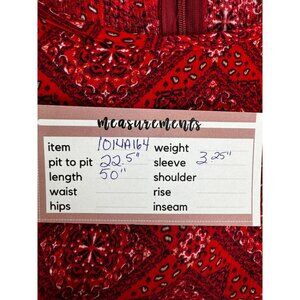 measurements
item 1014A164 weight
pit to pit 22.5" sleeve 3.25"
length 50" shoulder
waist rise
hips inseam